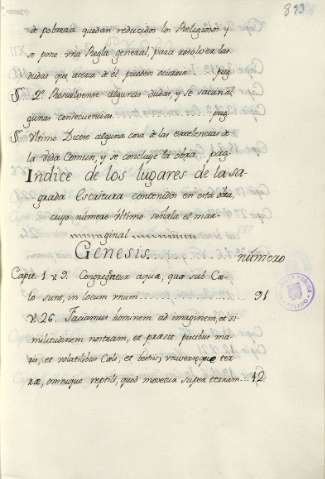 de pobreza quedan reducidos los Religiosos y
se pone una Regla general, para resolver las
dudas que acerca de él pueden ocurrir. pag
§ 2º Resuelvense algunas dudas, y se sacan al
gunas consecuencias. pag
§ Ultimo Dicese alguna cosa de las excelencias de
la Vida Comun, y se concluye la obra. pag
Indice de los lugares de la sa-
grada Escritura contenidos en esta obra,
cuyo número último señala el mar-
ginal
Génesis. número
Capte. 1 v 9. Congregentur aquæ, quæ sub Cœ-
lo sunt, in locum unum 91
V. 26. Faciamus hominem ad imaginem, et si
militudinem nostram, et præsit piscibus ma-
ris, et volatilibus Cœli, et bestiis, universæque ter-
ræ, omnique reptili, quod movetur super terram 12